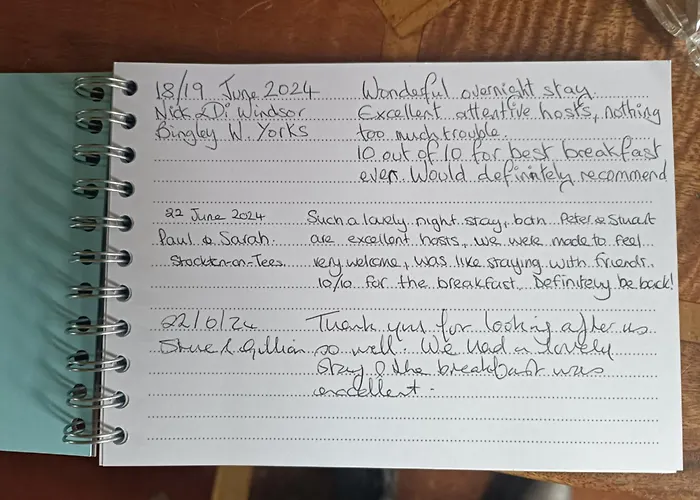 18/19 June 2024 Wonderful overnight stay.
Nick & Di Windsor Excellent attentive hosts, nothing
Bingley W. Yorks too much trouble.
10 out of 10 for best breakfast
ever. Would definitely recommend
22 June 2024 Such a lovely night stay, both Peter & Stuart
Paul & Sarah. are excellent hosts, we were made to feel
Stockton-on-Tees very welcome, was like staying with friends.
10/10 for the breakfast. Definitely be back!
22/6/24 Thank you for looking after us
Steve & Gillian so well. We had a lovely
stay & the breakfast was
excellent.